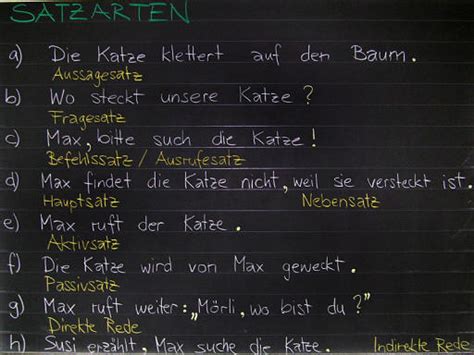 SATZARTEN
a) Die Katze klettert auf den Baum.
Aussagesatz
b) Wo steckt unsere Katze?
Fragesatz
c) Max, bitte such die Katze!
Befehlssatz / Ausrufesatz
d) Max findet die Katze nicht, weil sie versteckt ist.
Hauptsatz Nebensatz
e) Max ruft der Katze.
Aktivsatz
f) Die Katze wird von Max geweckt.
Passivsatz
g) Max ruft weiter: „Mörli, wo bist du?"
Direkte Rede
h) Susi erzählt, Max suche die Katze. Indirekte Rede